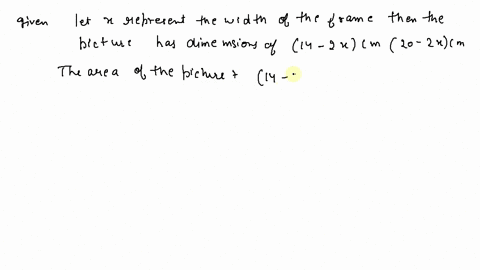 given let x represent the width of the frame then the
picture has dimensions of (14-2x)cm (20-2x)cm
The area of the picture + (14-